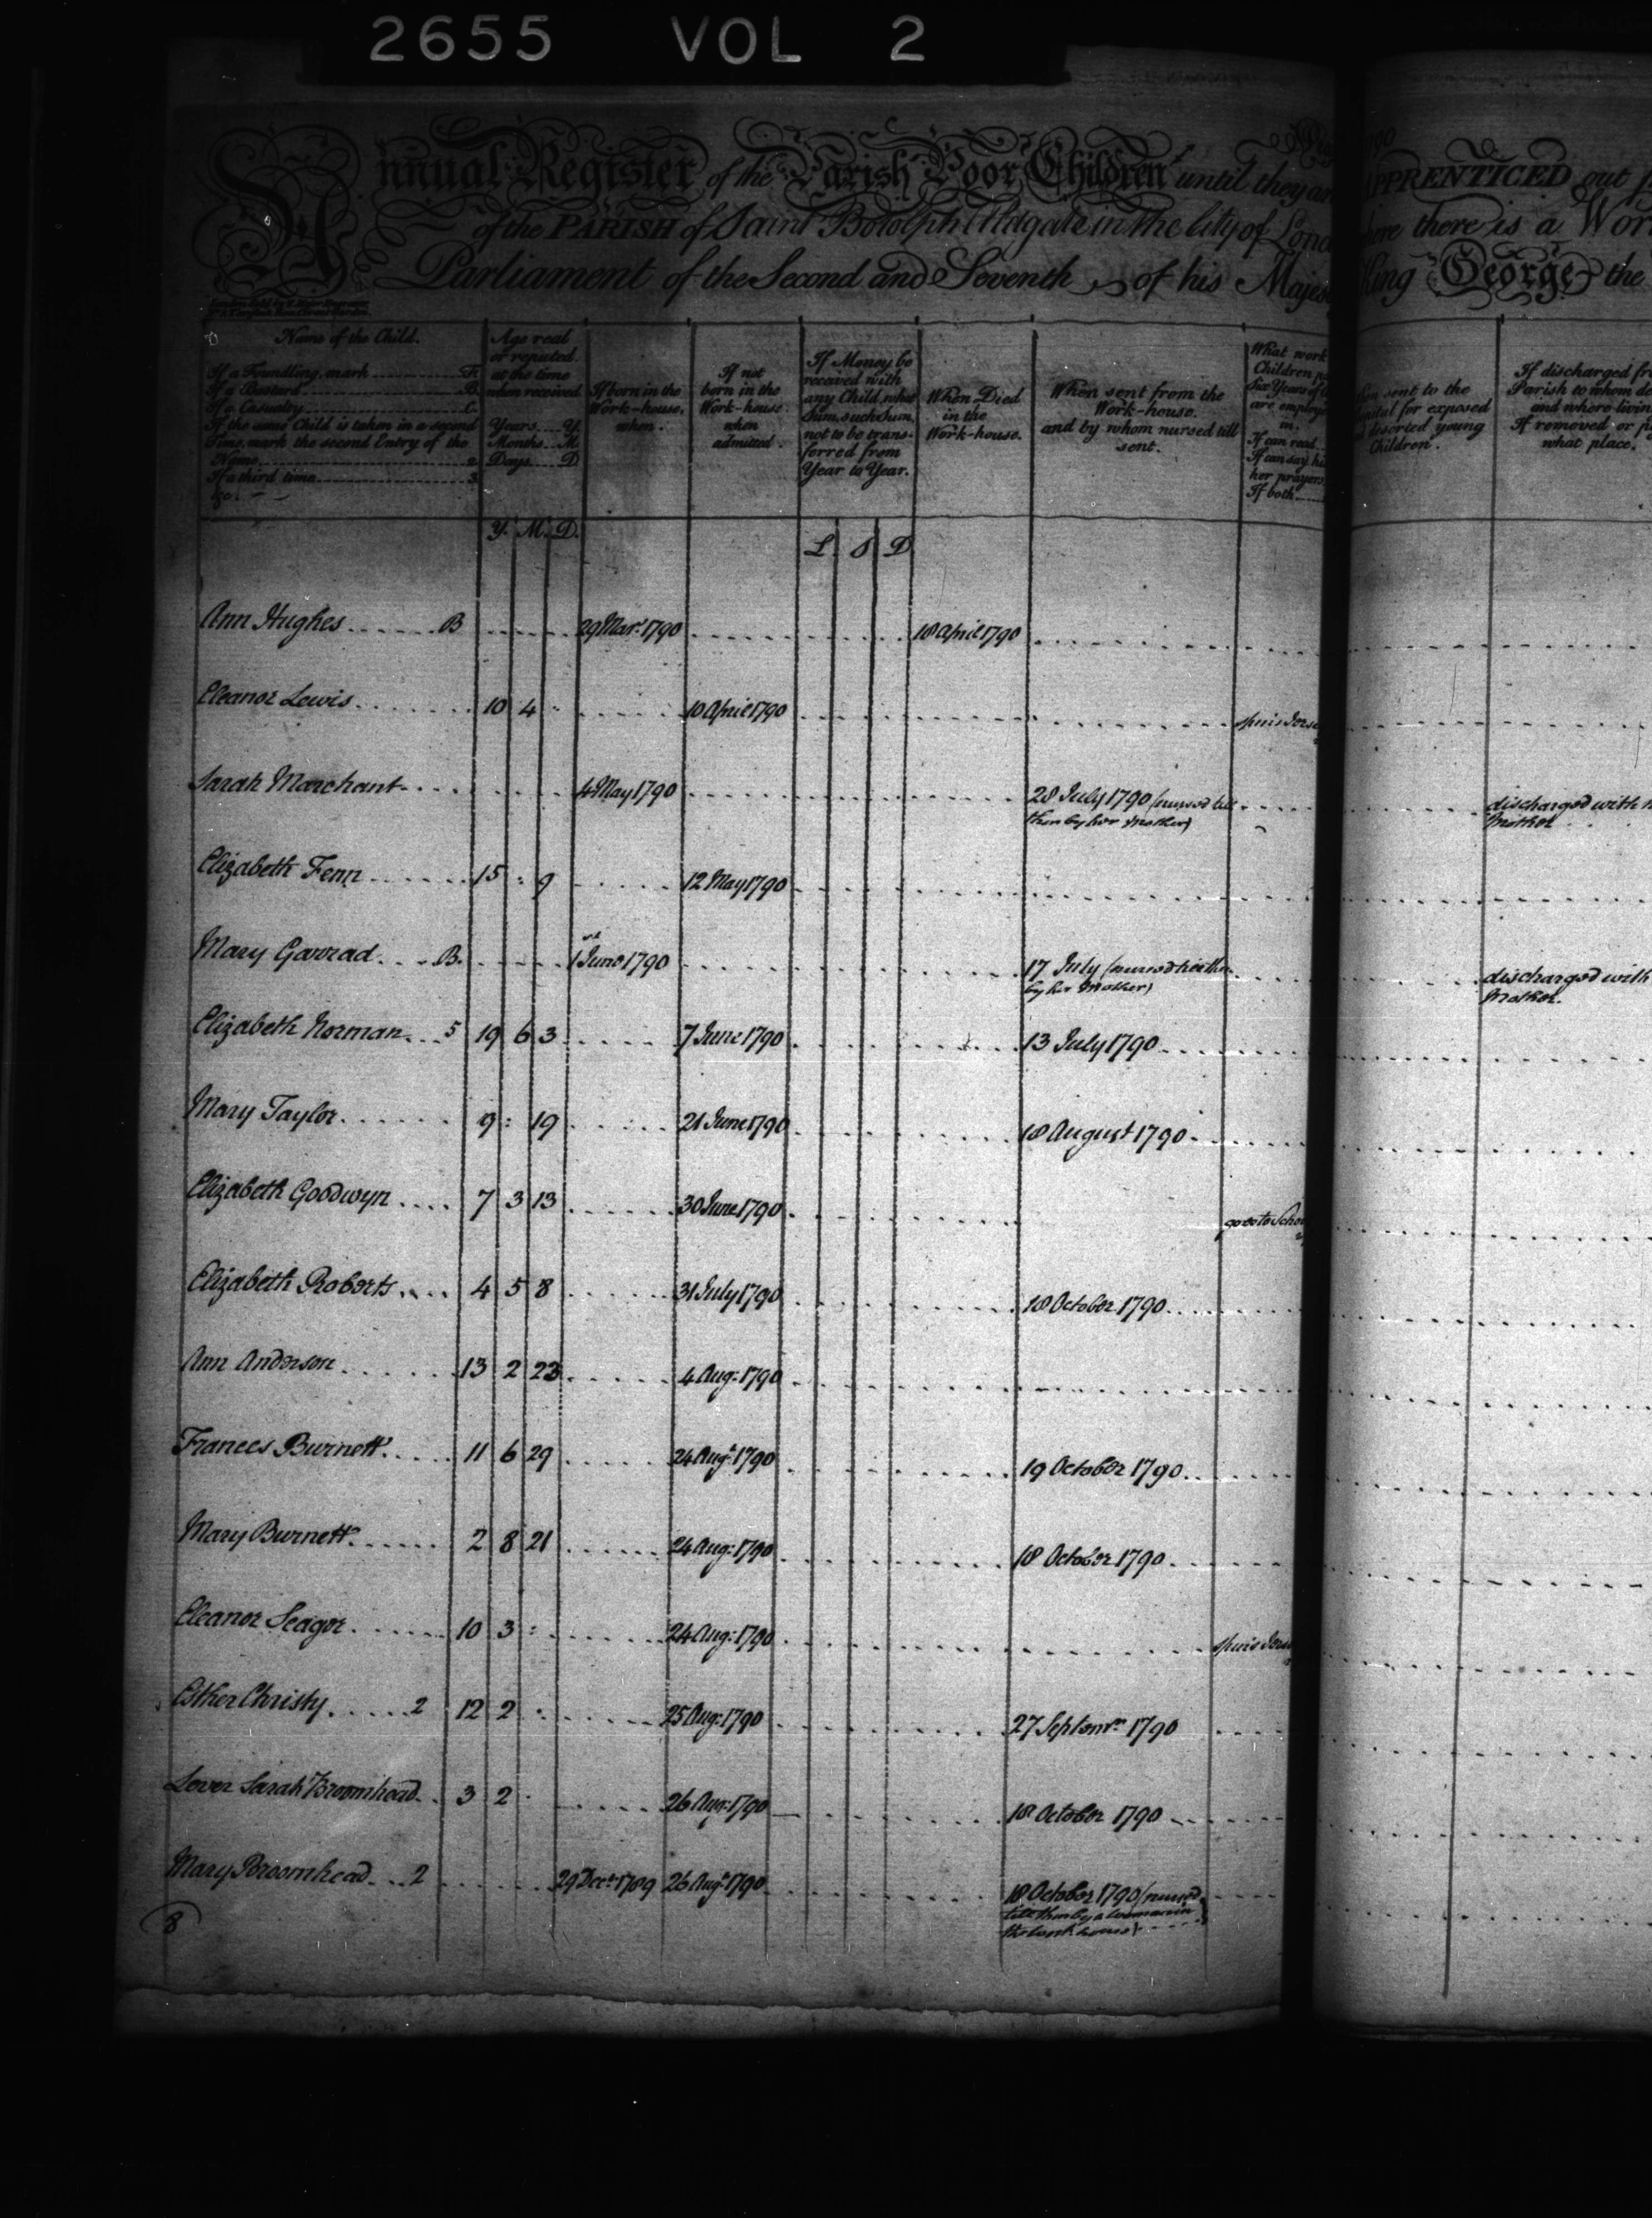 2655 VOL 2
Annual Register of the Parish Poor Children until they are
of the PARISH of Saint Botolph Aldgate in the City of Lond
Parliament of the Second and Seventh of his Majes
1790
APPRENTICED out
there is a Wor
King George the
Name of the Child.
If a Foundling, mark F.
If a Bastard B.
If a Casualty C.
If the same Child is taken in a second
Time, mark the second Entry of the
Name 2.
If a third time 3.
&c.
Age real
or reputed
at the time
when received
Years Y.
Months M.
Days D
If born in the
Work-house.
when.
If not
born in the
Work-house
when
admitted.
If Money be
received with
any Child, what
Sum, such Sum,
not to be trans-
ferred from
Year to Year.
When Died
in the
Work-house.
When sent from the
Work-house.
and by whom nursed till
sent.
What work
Children
Six Years of
are employ
in.
If can read
If can say his
her prayers
If both
sent to the
Hospital for exposed
deserted young
Children.
If discharged fr
Parish to whom de
and where living
If removed or
what place.
Y. M. D. L S D
Ann Hughes B 29 Mar. 1790 18 April 1790
Eleanor Lewis 10 4 10 April 1790
Sarah Marchant 4 May 1790 28 July 1790 (nursed till discharged with
then by her Mother) Mother
Elizabeth Fenn 15 : 9 12 May 1790
Mary Garrad B. 1st June 1790 17 July (nursed discharged with
by her Mother) Mother.
Elizabeth Norman 5 19 6 3 7 June 1790 13 July 1790
Mary Taylor 9 : 19 21 June 1790 18 August 1790
Elizabeth Goodwyn 7 3 13 30 June 1790 goes to Scho
Elizabeth Roberts 4 5 8 31 July 1790 18 October 1790
Ann Anderson 13 2 23 4 Aug: 1790
Frances Burnett 11 6 29 24 Augt. 1790 19 October 1790
Mary Burnett 2 8 21 24 Aug: 1790 18 October 1790
Eleanor Seager 10 3 : 24 Aug: 1790
Esther Christy 2 12 2 25 Aug: 1790 27 Septemr. 1790
Sarah Broomhead 3 2 26 Aug: 1790 18 October 1790
Mary Broomhead 2 29 Decr. 1789 26 Augt. 1790 18 October 1790 (nursed
till then by a woman in
the work house)
8